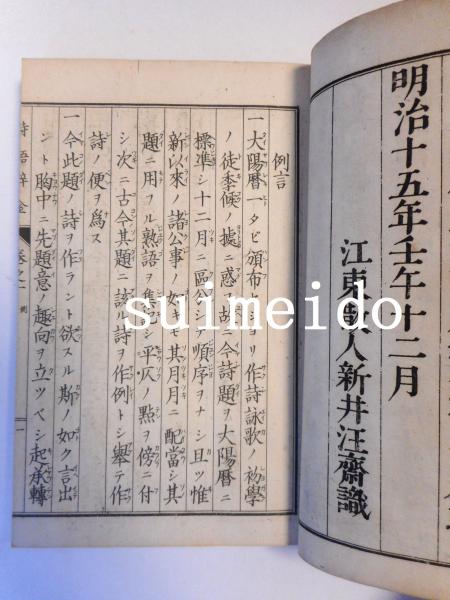 明治十五年壬午十二月
江東散人新井汪齋識
例言
一大陽暦一タビ頒布セシヨリ作詩詠歌ノ初學
ノ徒季候ノ據ニ惑フ故ニ今詩題ヲ大陽暦ニ
標準シ十二月ニ區分シテ順序ヲナシ且ツ惟
新以來ノ諸公事ノ如キモ其月月ニ配當シ其
題ニ用フル熟語ヲ集メ平仄ノ點ヲ傍ニ付
シ次ニ古今其題ニ該ル詩ヲ作例トシ擧テ作
詩ノ便ヲ爲ス
一今此題ノ詩ヲ作ラント欲スル斯ノ如ク言出
ント胸中ニ先題意ノ趣向ヲ立ツベシ起承轉
詩語粹金
卷之一
例
一
suimeido